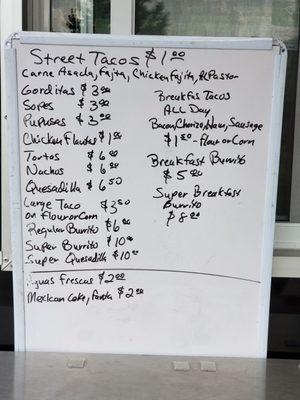 Street Tacos $1.00
Carne Asada, Fajita, Chicken Fajita, Al Pastor
Gorditas $3.00
Sopes $3.00
Pupusas $3.00
Chicken Flautas $1.00
Tortas $6.00
Nachos $6.00
Quesadilla $6.50
Large Taco $3.50
on Flour or Corn
Regular Burrito $6.00
Super Burrito $10.00
Super Quesadilla $10.00
Breakfas Tacos
ALL Day
Bacon, Chorizo, Ham, Sausage
$1.50 - Flour or Corn
Breakfast Burrito
$5.00
Super Breakfast
Burrito
$8.00
Aguas Frescas $2.00
Mexican Coke, Fanta $2.00